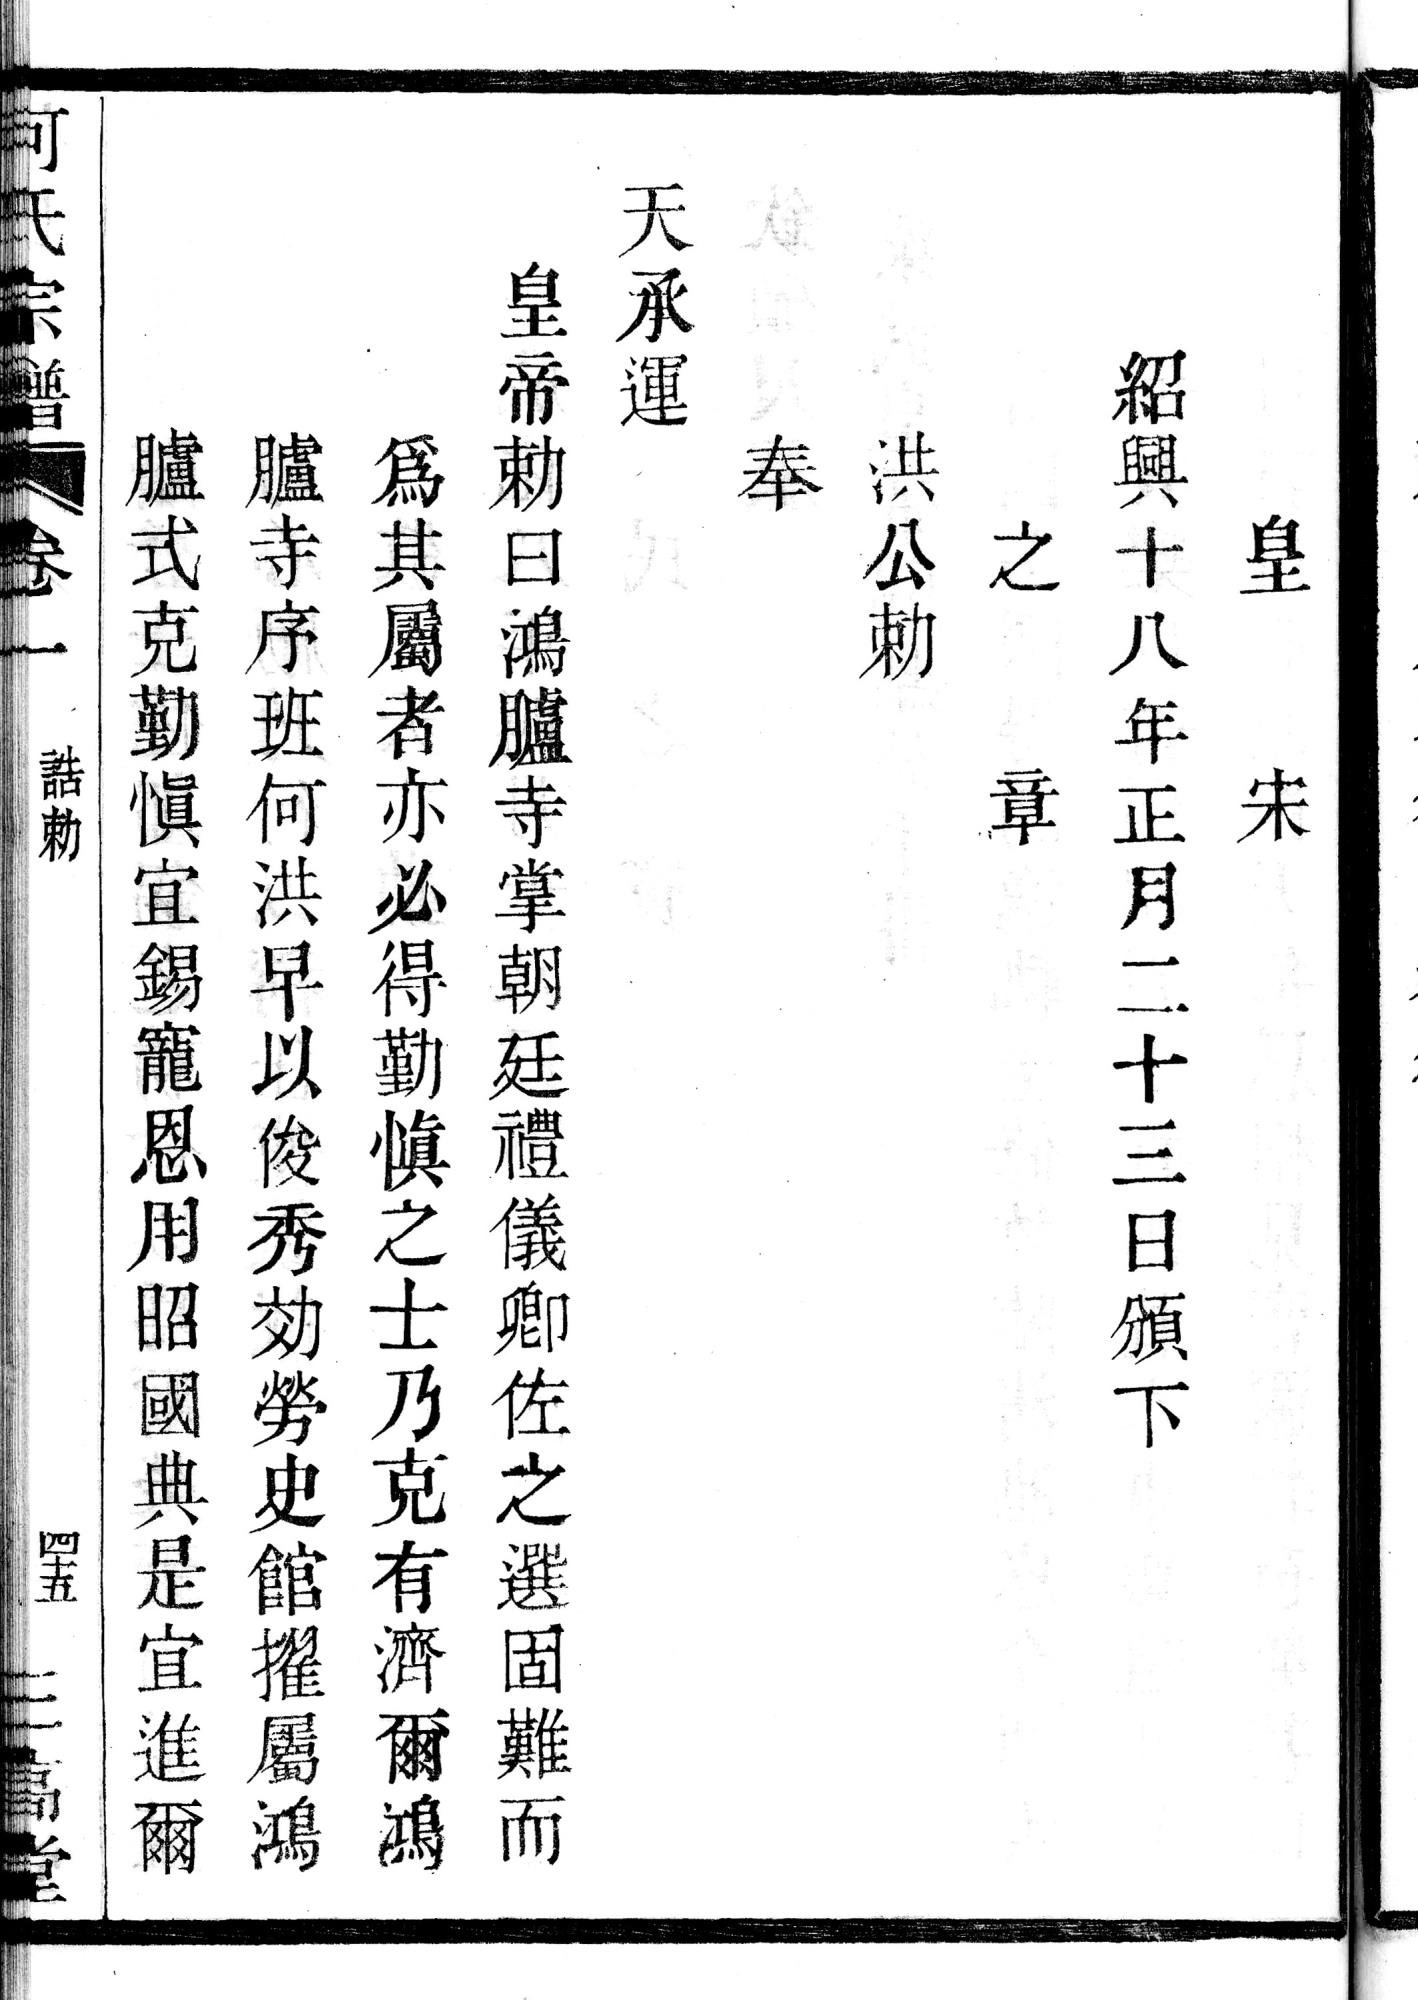 皇宋
紹興十八年正月二十三日頒下
之章
洪公勅
奉
天承運
皇帝勅曰鴻臚寺掌朝廷禮儀卿佐之選固難而
爲其屬者亦必得勤愼之士乃克有濟爾鴻
臚寺序班何洪早以俊秀効勞史館擢屬鴻
臚式克勤愼宜錫寵恩用昭國典是宜進爾
何氏宗譜 卷一 誥勅 四十五 三高堂